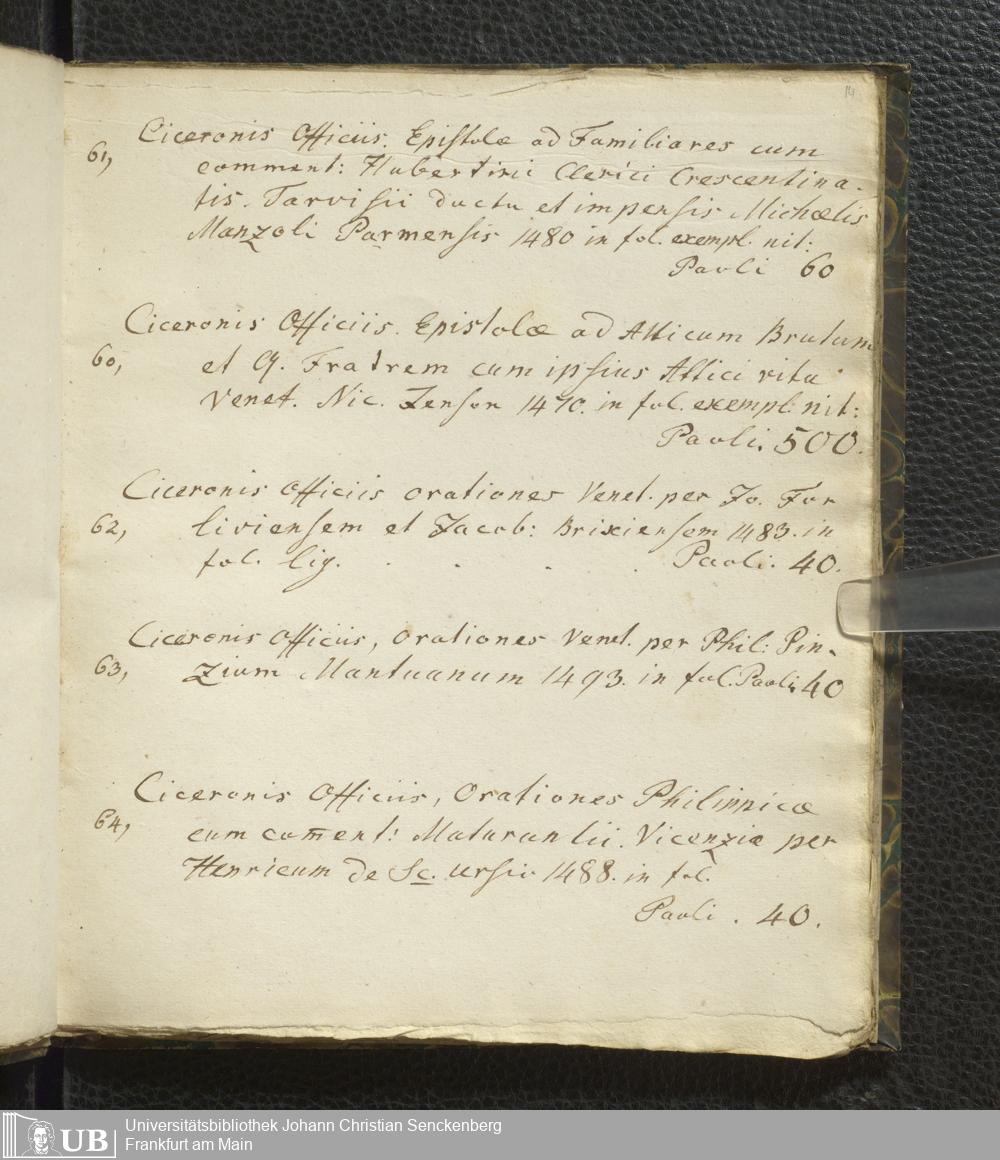 14
Ciceronis Officiis. Epistolæ ad Familiares cum
61, comment: Hubertini Clerici Crescentina-
tis. Tarvisii ductu et impensis Michælis
Manzoli Parmensis 1480 in fol. exempl. nit:
Paoli 60
Ciceronis Officiis. Epistolæ ad Atticum Brutum
60, et Q. Fratrem cum ipsius Attici vita
Venet. Nic. Jenson 1470. in fol. exempl: nit:
Paoli. 500.
Ciceronis Officiis orationes Venet. per Jo. For
62, liviensem et Jacob: Brixiensem 1483. in
fol. lig. . . . . Paoli. 40.
Ciceronis Officiis, Orationes Venet. per Phil: Pin-
63, zium Mantuanum 1493. in fol. Paoli. 40
Ciceronis Officiis, Orationes Philippicæ
64, cum com̅ent: Maturantii. Vicenziæ per
Henricum de Sc. Ursio 1488. in fol.
Paoli . 40.
UB Universitätsbibliothek Johann Christian Senckenberg
Frankfurt am Main